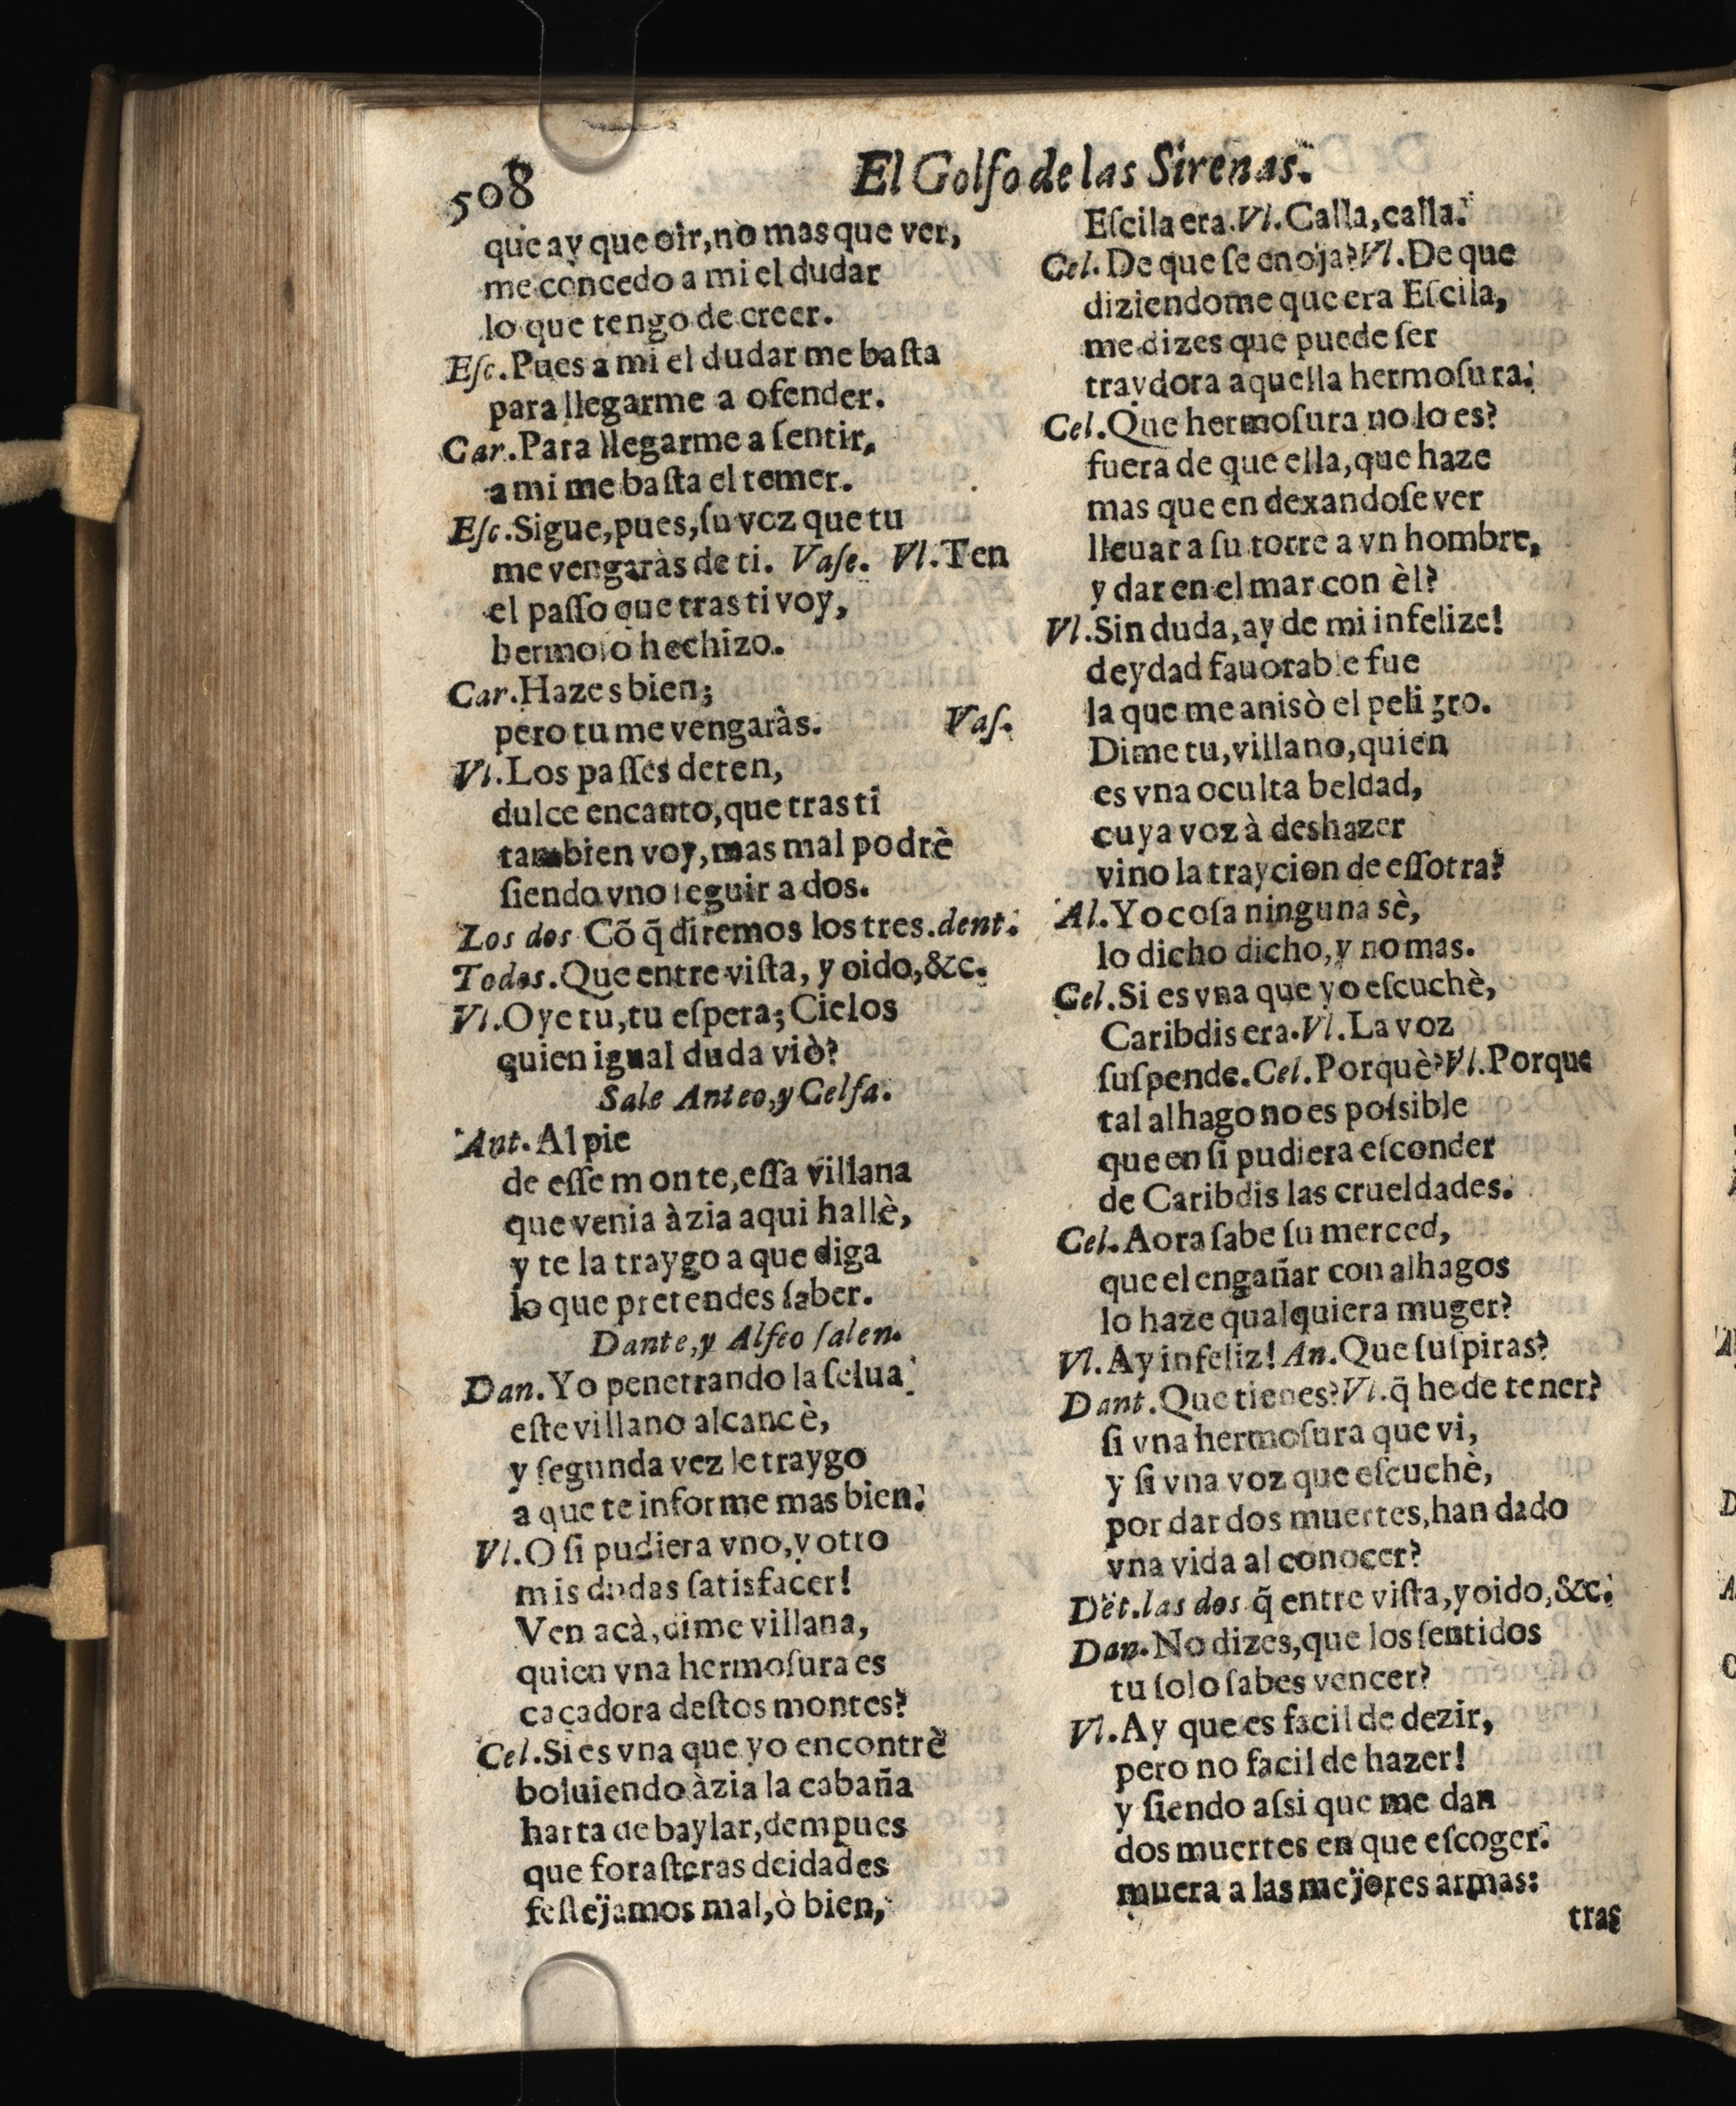 508
El Golfo de las Sirenas.
que ay que oir, no mas que ver,
me concedo a mi el dudar
lo que tengo de creer.
Eſc. Pues a mi el dudar me baſta
para llegarme a ofender.
Car. Para llegarme a ſentir,
a mi me baſta el temer.
Eſc. Sigue, pues, ſu voz que tu
me vengaràs de ti. Vaſe. Vl. Ten
el paſſo que tras ti voy,
hermoſo hechizo.
Car. Hazes bien;
pero tu me vengaràs. Vaſ.
Vl. Los paſſes deten,
dulce encanto, que tras ti
tambien voy, mas mal podrè
ſiendo vno ſeguir a dos.
Los dos Cõ q̃ diremos los tres. dent.
Todos. Que entre viſta, y oido, &c.
Vl. Oye tu, tu eſpera; Cielos
quien igual duda viò?
Sale Anteo, y Celfa.
Ant. Al pie
de eſſe monte, eſſa villana
que venia àzia aqui hallè,
y te la traygo a que diga
lo que pretendes ſaber.
Dante, y Alfeo ſalen.
Dan. Yo penetrando la ſelua
eſte villano alcancè,
y ſegunda vez le traygo
a que te informe mas bien.
Vl. O ſi pudiera vno, y otro
mis dudas ſatisfacer!
Ven acà, dime villana,
quien vna hermoſura es
caçadora deſtos montes?
Cel. Si es vna que yo encontrè
boluiendo àzia la cabaña
harta de baylar, dempues
que foraſteras deidades
feſtejamos mal, ò bien,
Eſcila era. Vl. Calla, calla.
Cel. De que ſe enoja? Vl. De que
diziendome que era Eſcila,
me dizes que puede ſer
traydora aquella hermoſura.
Cel. Que hermoſura no lo es?
fuera de que ella, que haze
mas que en dexandoſe ver
lleuar a ſu torre a vn hombre,
y dar en el mar con èl?
Vl. Sin duda, ay de mi infelize!
deydad fauorable fue
la que me anisò el peligro.
Dime tu, villano, quien
es vna oculta beldad,
cuya voz à deshazer
vino la traycion de eſſotra?
Al. Yo coſa ninguna sè,
lo dicho dicho, y no mas.
Cel. Si es vna que yo eſcuchè,
Caribdis era. Vl. La voz
ſuſpende. Cel. Porquè? Vl. Porque
tal alhago no es poſsible
que en ſi pudiera eſconder
de Caribdis las crueldades.
Cel. Aora ſabe ſu merced,
que el engañar con alhagos
lo haze qualquiera muger?
Vl. Ay infeliz! An. Que ſuſpiras?
Dant. Que tienes? Vl. q̃ he de tener?
ſi vna hermoſura que vi,
y ſi vna voz que eſcuchè,
por dar dos muertes, han dado
vna vida al conocer?
Dẽt. las dos q̃ entre viſta, y oido, &c.
Dan. No dizes, que los ſentidos
tu ſolo ſabes vencer?
Vl. Ay que es facil de dezir,
pero no facil de hazer!
y ſiendo aſsi que me dan
dos muertes en que eſcoger.
muera a las mejores armas:
tras